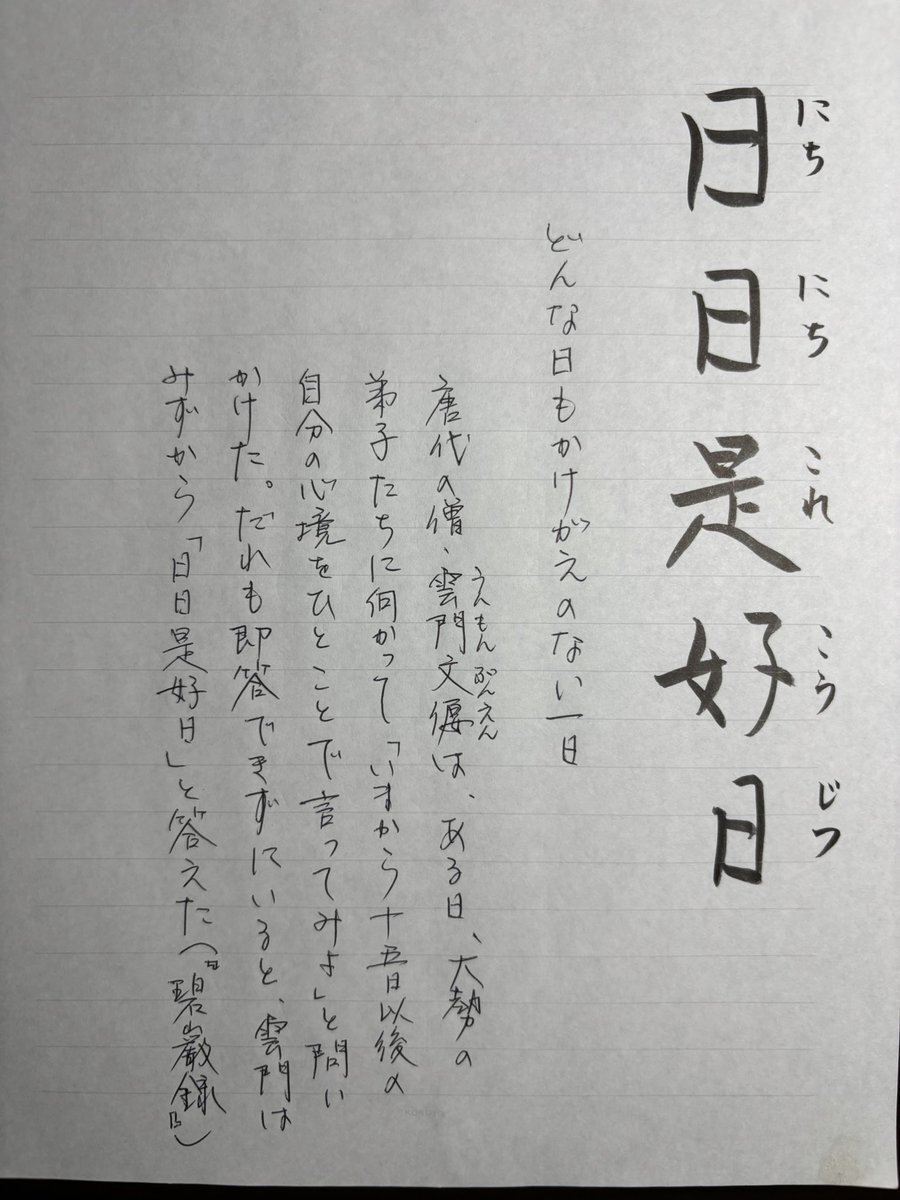 日日是好日
にち にち これ こう じつ
どんな日もかけがえのない一日
唐代の僧、雲門文偃は、ある日、大勢の
うんもん ぶんえん
弟子たちに向かって「いまから十五日以後の
自分の心境をひとことで言ってみよ」と問い
かけた。だれも即答できずにいると、雲門は
みずから「日日是好日」と答えた(『碧巌録』)
KOKUYO